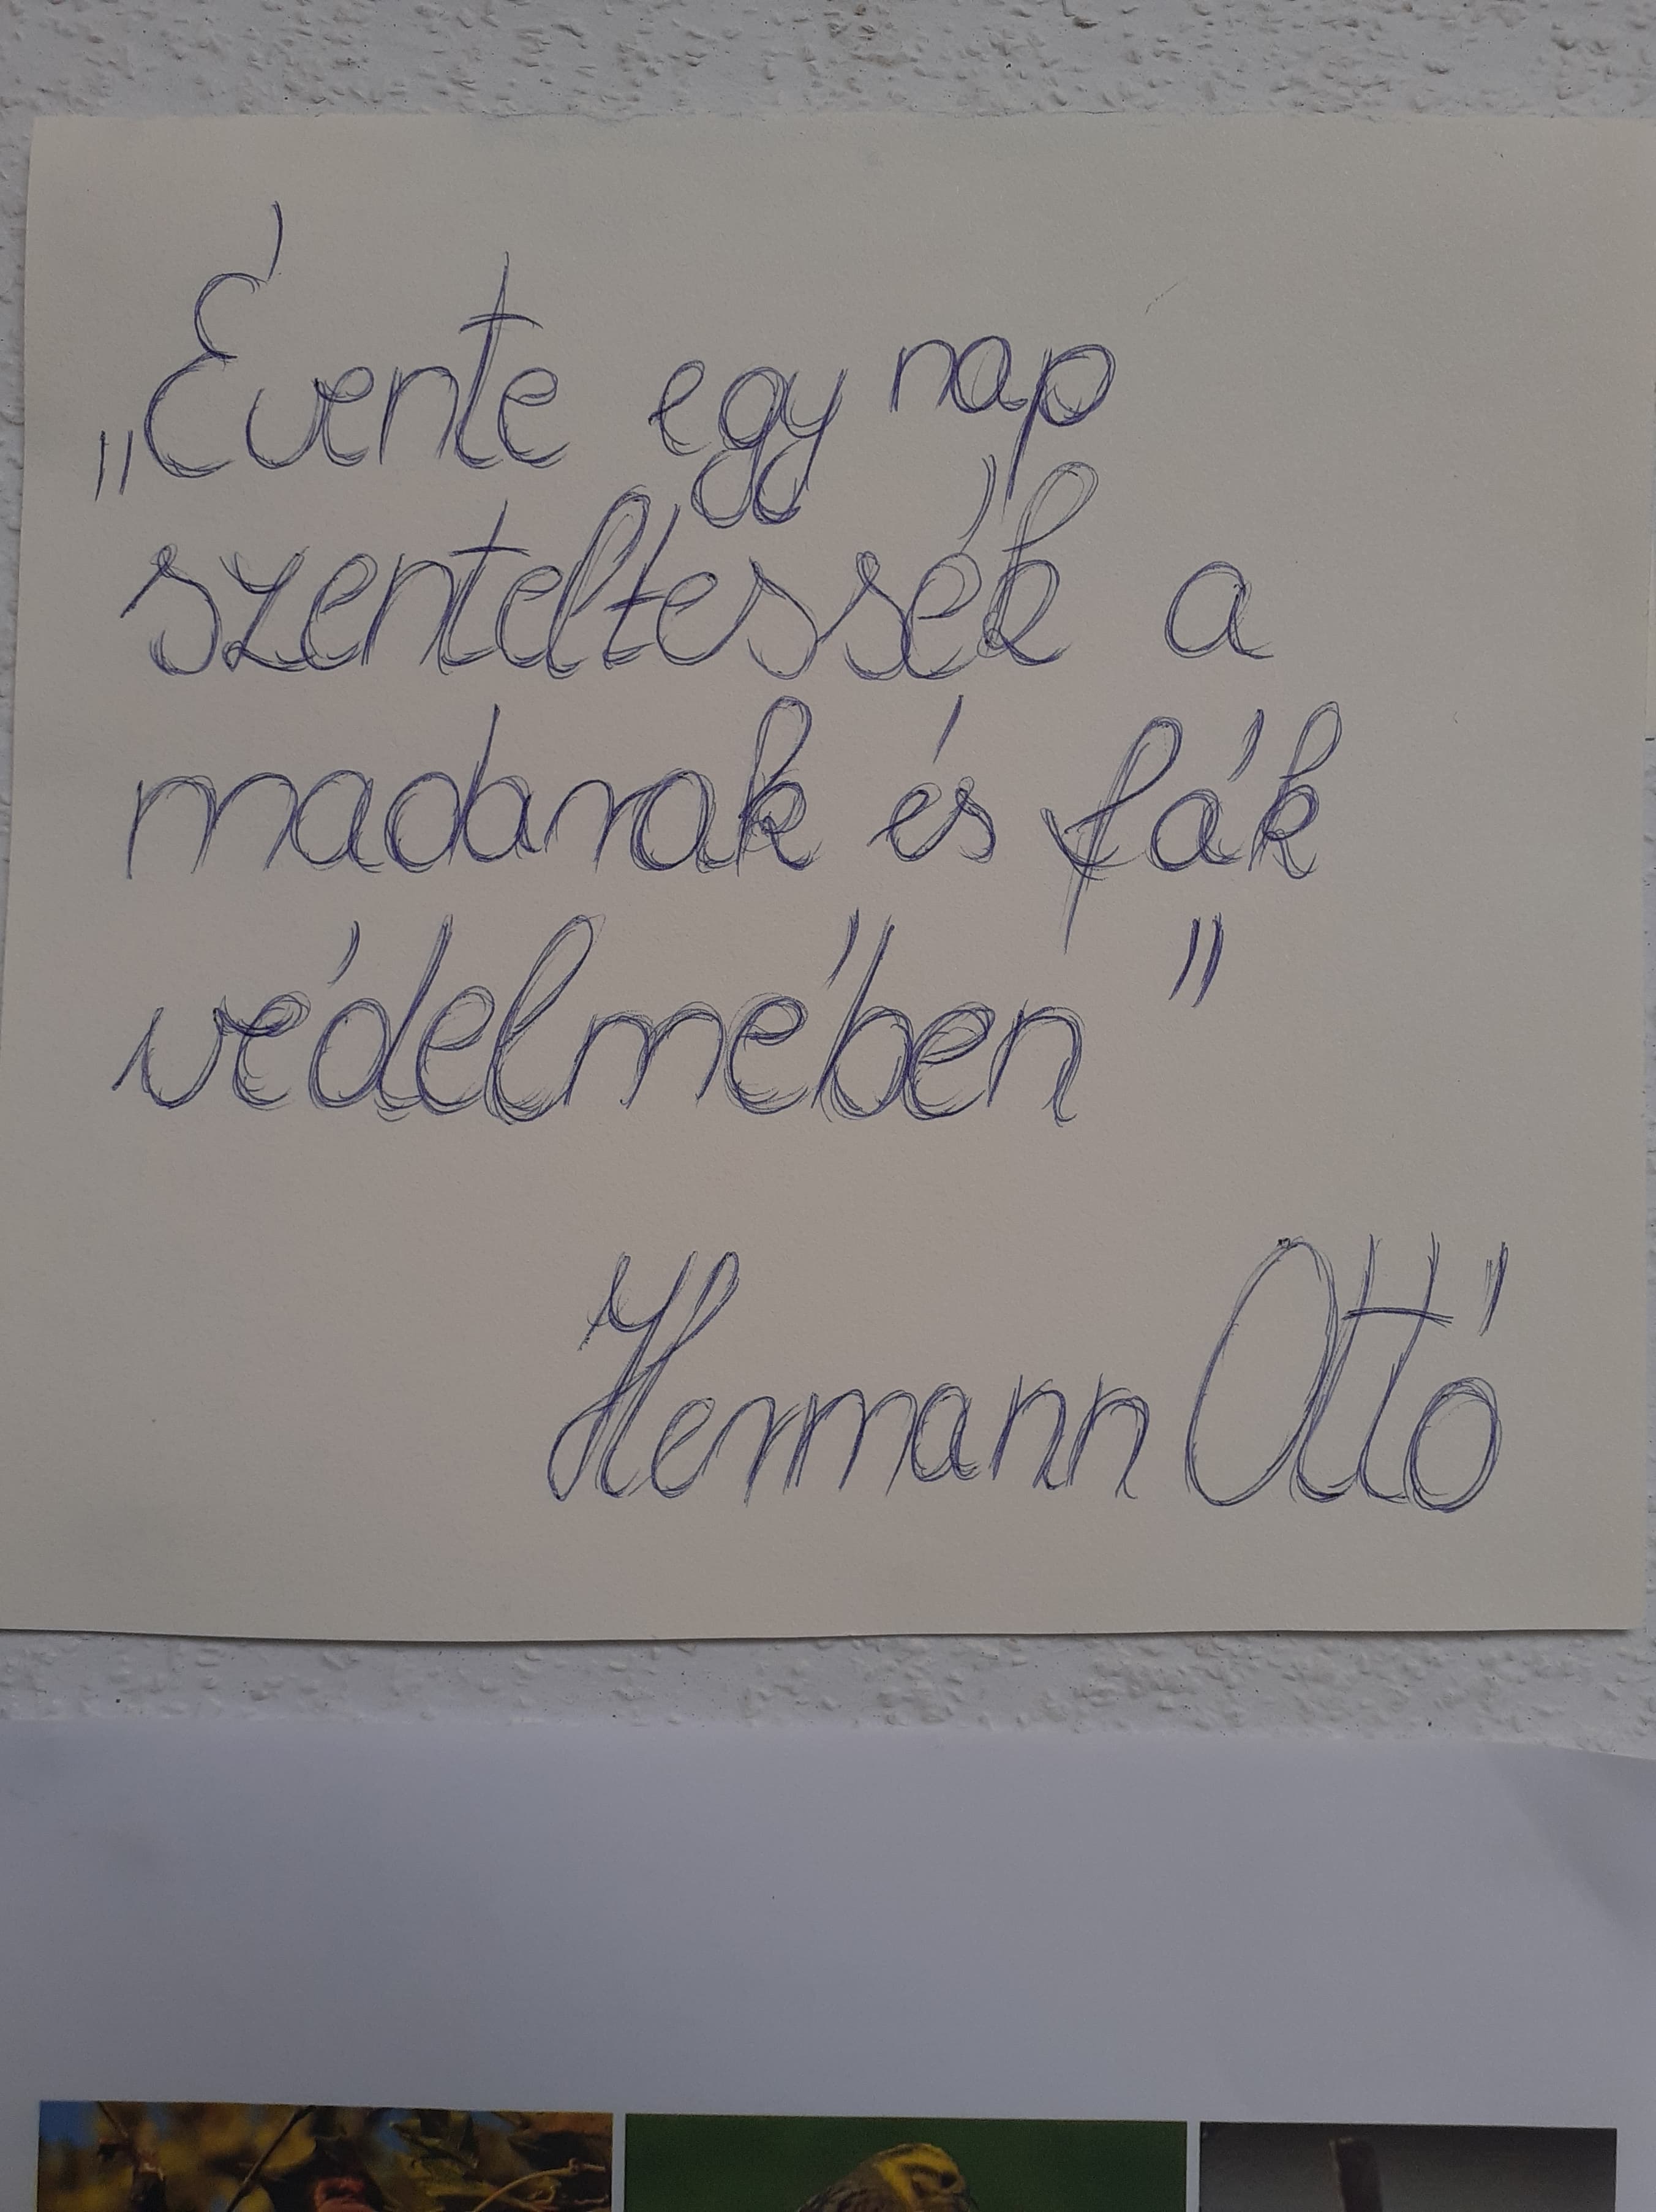 „Évente egy nap
szenteltessék a
madarak és fák
védelmében”
Hermann Ottó